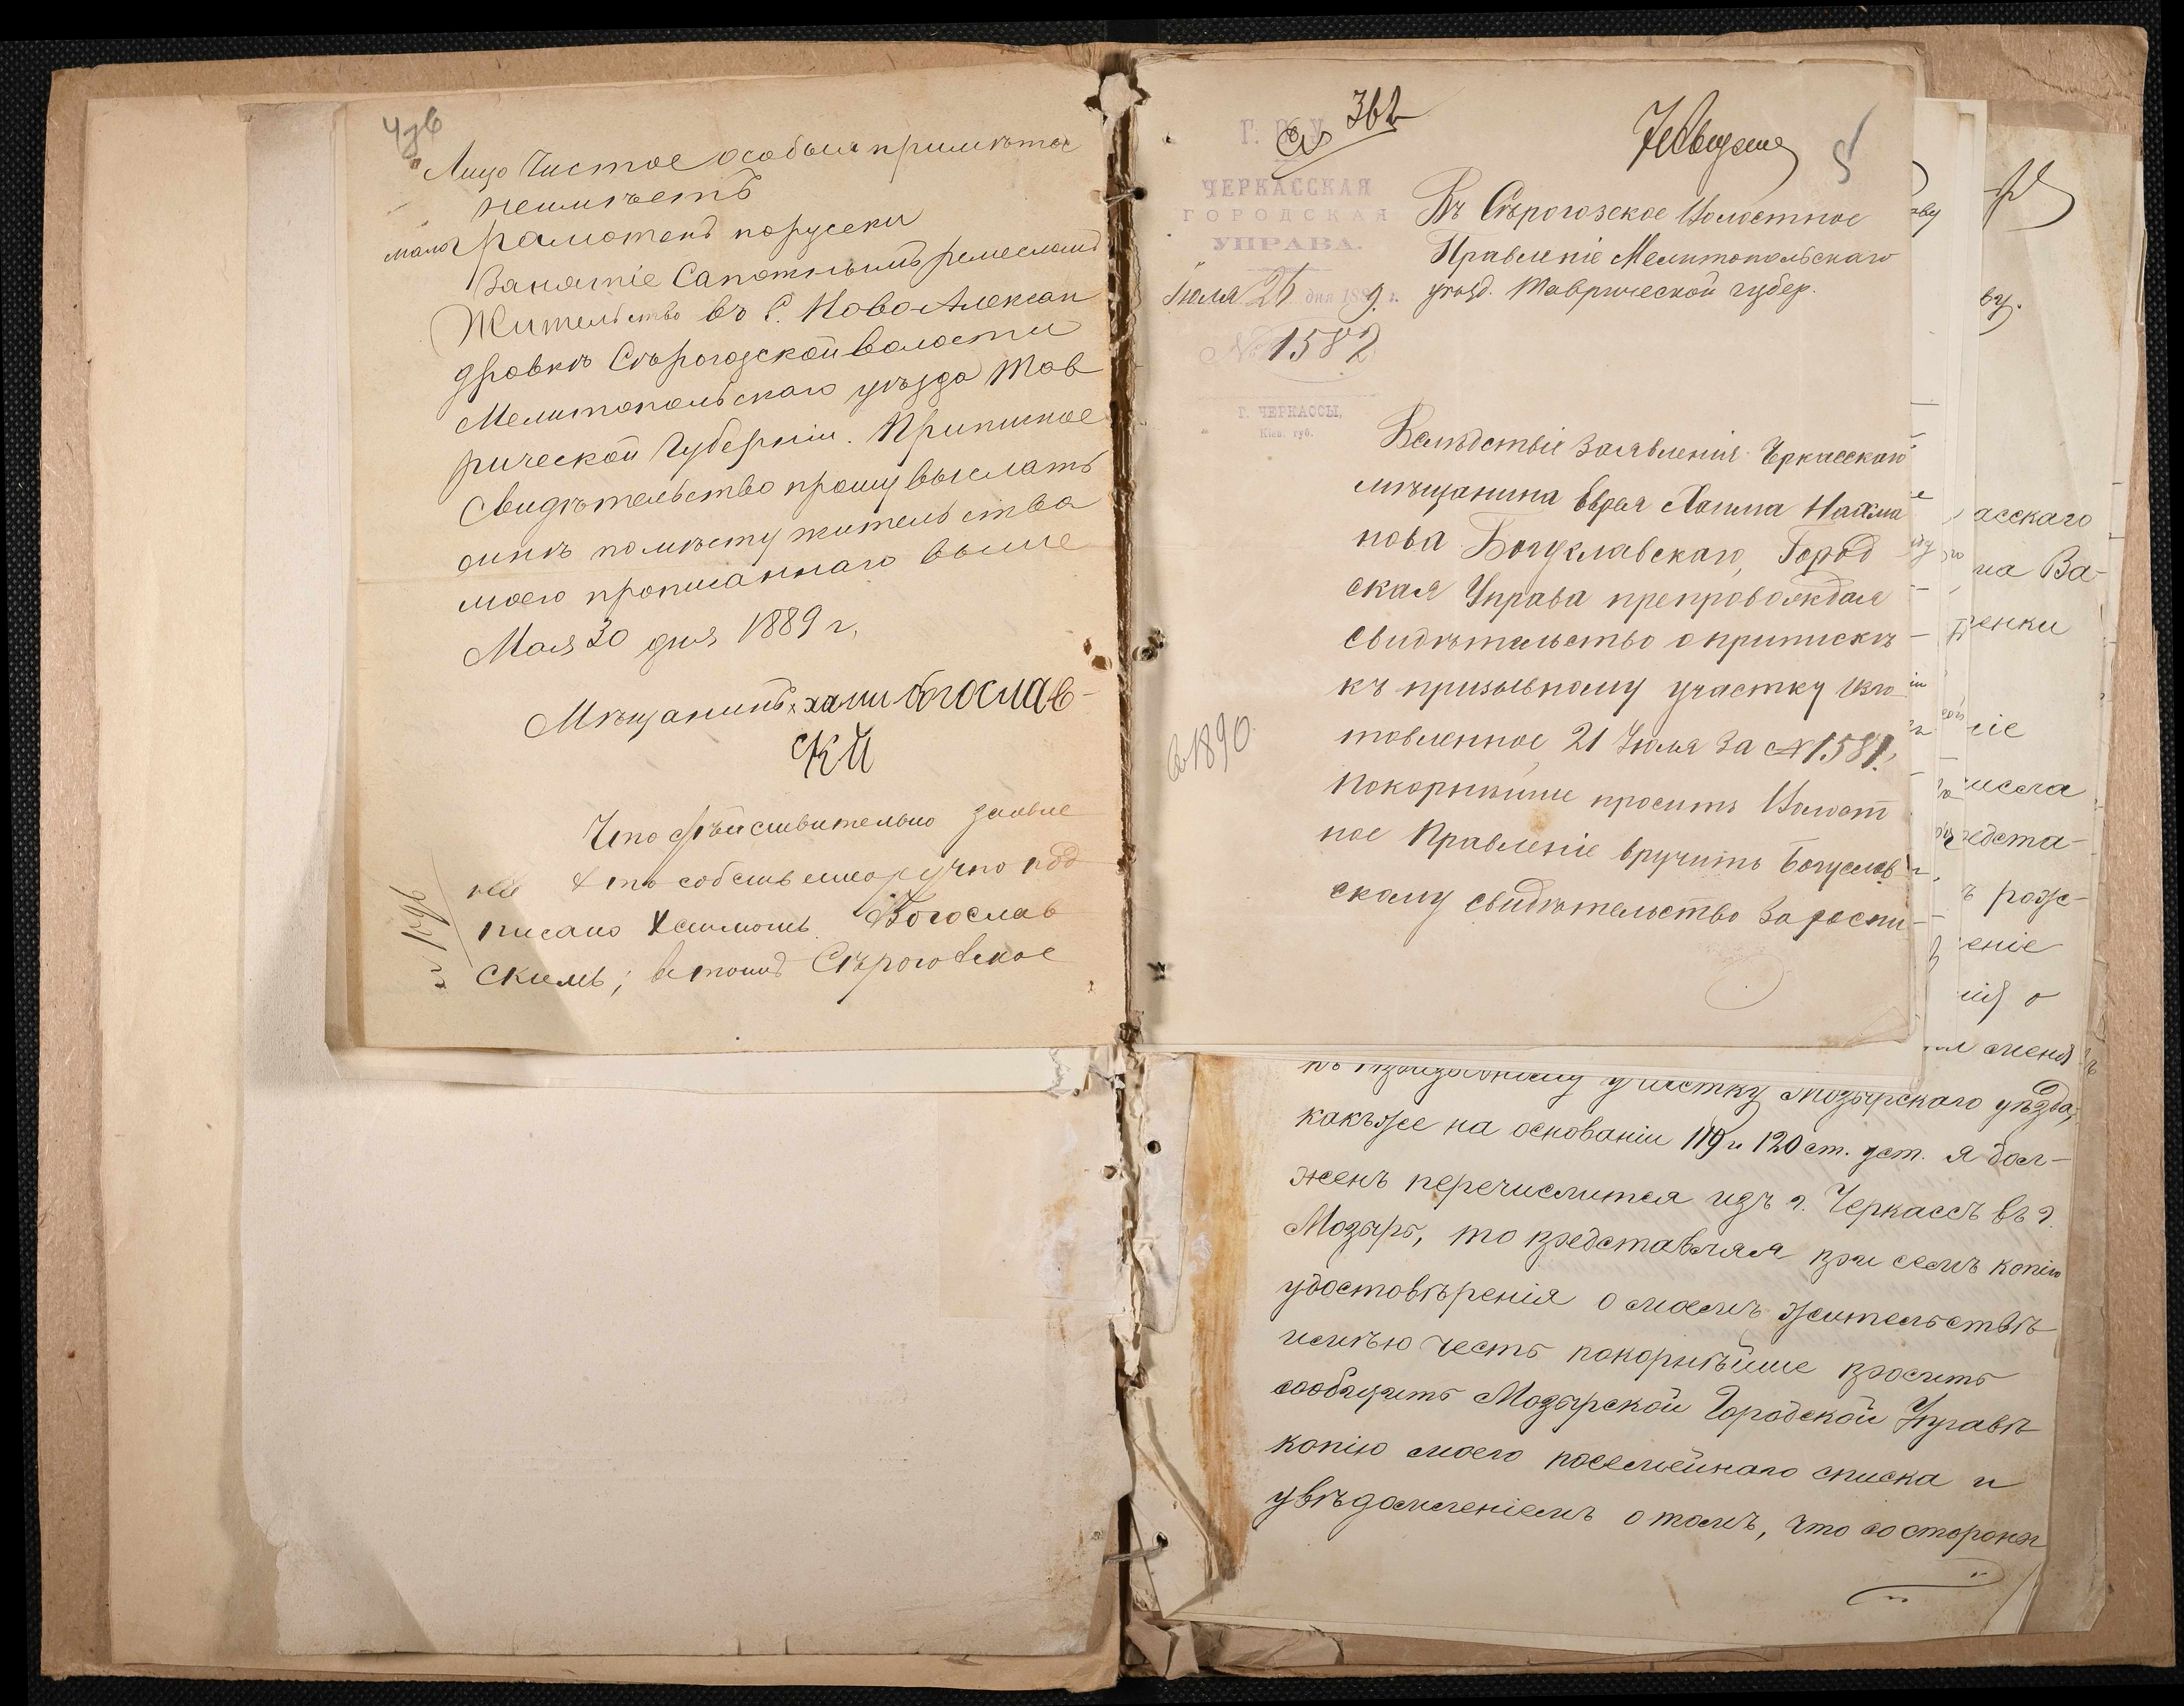 Лицо Чистое особыхъ приметъ
неимѣетъ
мало грамотенъ порусски
Занятіе Сапожнымъ ремесломъ
Жительство въ С. Ново Алексан
дровкѣ Сѣрогозской волости
Мелитопольскаго уѣзда Тав
рической Губерніи. Приписное
Свидѣтельство прошу выслать
мнѣ помѣсту жительства
моего прописаннаго выше
Мая 30 дня 1889 г.
Мѣщанинъ хаим богослав-
ский
Что дѣйствительно заявле
ніе это собственноручно под
писано Хаимомъ Богослав
скимъ; въ томъ Сѣрогозское
362
ЧЕРКАССКАЯ
ГОРОДСКАЯ
УПРАВА.
Іюля 26 дня 1889 г.
№ 1582
Г. ЧЕРКАССЫ,
Кіев. губ.
5
Въ Сѣрогозское Волостное
Правленіе Мелитопольскаго
уѣзд. Таврической губер.
Вслѣдствіе заявленія Черкасскаго
мѣщанина Еврея Хаима Нахма
нова Богуславскаго, Город
ская Управа препровождая
свидѣтельство о припискѣ
къ призывному участку изго
товленное 21 Іюля за № 1581,
покорнѣйше проситъ Волост
ное Правленіе вручить Богуслав
скому свидѣтельство за роспи-
1890
асскаго
на Ва-
енки
ніе
числа
едста-
рож-
еніе
меня
къ призывному участку Мозырскаго уѣзда,
какъ же на основаніи 119 и 120 ст. уст. я дол-
женъ перечислится изъ г. Черкассъ въ г.
Мозырь, то представляя при семъ копію
удостовѣренія о моемъ жительствѣ
имѣю честь покорнѣйше просить
сообщить Мозырской Городской Управѣ
копію моего посемейнаго списка и
увѣдомленіемъ о томъ, что со стороны